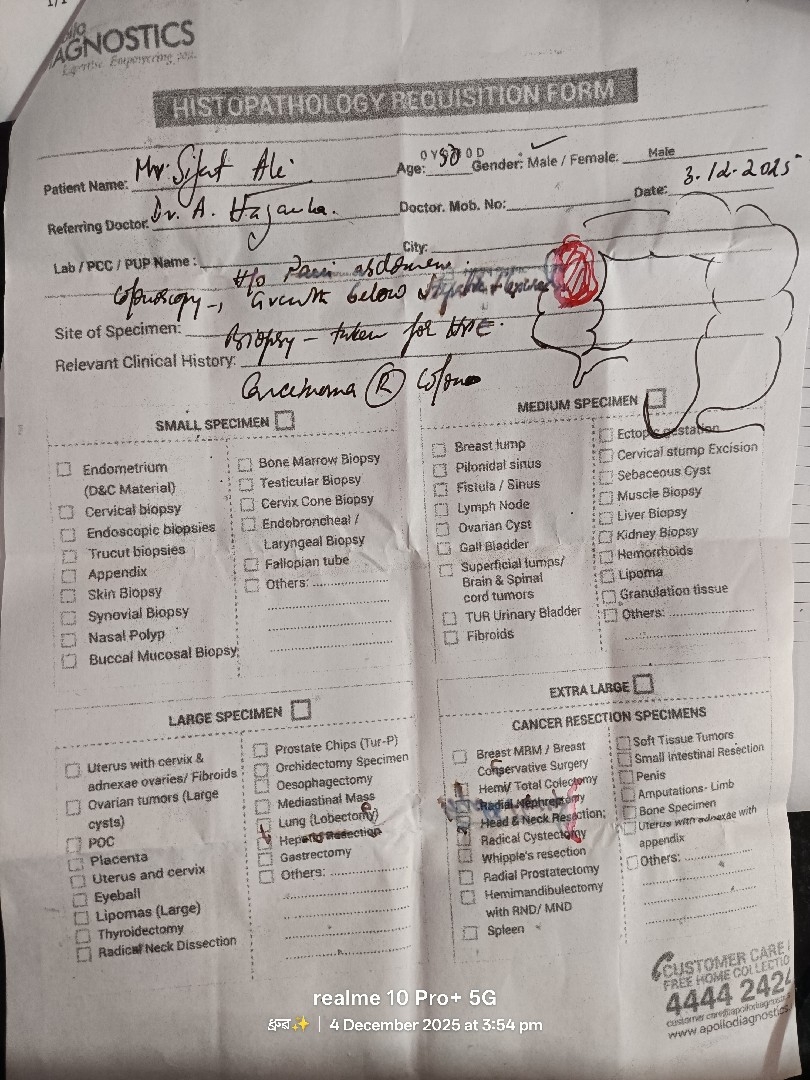 1/1
AGNOSTICS
Expertise. Empowering you.
HISTOPATHOLOGY REQUISITION FORM
Patient Name: Mr. Sifat Ali Age: 0 Y 0 D Gender: Male / Female: Male
Referring Doctor: Dr. A. Hazarika. Doctor. Mob. No: Date: 3.12.2025
Lab / PCC / PUP Name : City:
H/o Pain abdomen.
Colonoscopy -, Growth below Hepatic Flexure
Site of Specimen: Biopsy - taken for HPE.
Relevant Clinical History:
Carcinoma R Colon
SMALL SPECIMEN
Endometrium
(D&C Material)
Cervical biopsy
Endoscopic biopsies
Trucut biopsies
Appendix
Skin Biopsy
Synovial Biopsy
Nasal Polyp
Buccal Mucosal Biopsy
Bone Marrow Biopsy
Testicular Biopsy
Cervix Cone Biopsy
Endobroncheal /
Laryngeal Biopsy
Fallopian tube
Others:
MEDIUM SPECIMEN
Breast lump
Pilonidal sinus
Fistula / Sinus
Lymph Node
Ovarian Cyst
Gall Bladder
Superficial lumps/
Brain & Spinal
cord tumors
TUR Urinary Bladder
Fibroids
Ectopic gestation
Cervical stump Excision
Sebaceous Cyst
Muscle Biopsy
Liver Biopsy
Kidney Biopsy
Hemorrhoids
Lipoma
Granulation tissue
Others:
LARGE SPECIMEN
Uterus with cervix &
adnexae ovaries/ Fibroids
Ovarian tumors (Large
cysts)
POC
Placenta
Uterus and cervix
Eyeball
Lipomas (Large)
Thyroidectomy
Radical Neck Dissection
Prostate Chips (Tur-P)
Orchidectomy Specimen
Oesophagectomy
Mediastinal Mass
Lung (Lobectomy)
Hepatic Resection
Gastrectomy
Others:
EXTRA LARGE
CANCER RESECTION SPECIMENS
Breast MRM / Breast
Conservative Surgery
Hemi/ Total Colectomy
Radial Nephrectomy
Head & Neck Resection;
Radical Cystectomy
Whipple's resection
Radial Prostatectomy
Hemimandibulectomy
with RND/ MND
Spleen
Soft Tissue Tumors
Small Intestinal Resection
Penis
Amputations- Limb
Bone Specimen
Uterus with adnexae with
appendix
Others:
CUSTOMER CARE
FREE HOME COLLECTIO
4444 242
customer.care@apollodiagnos
www.apollodiagnostics
realme 10 Pro+ 5G
ধ্রুব✨ | 4 December 2025 at 3:54 pm